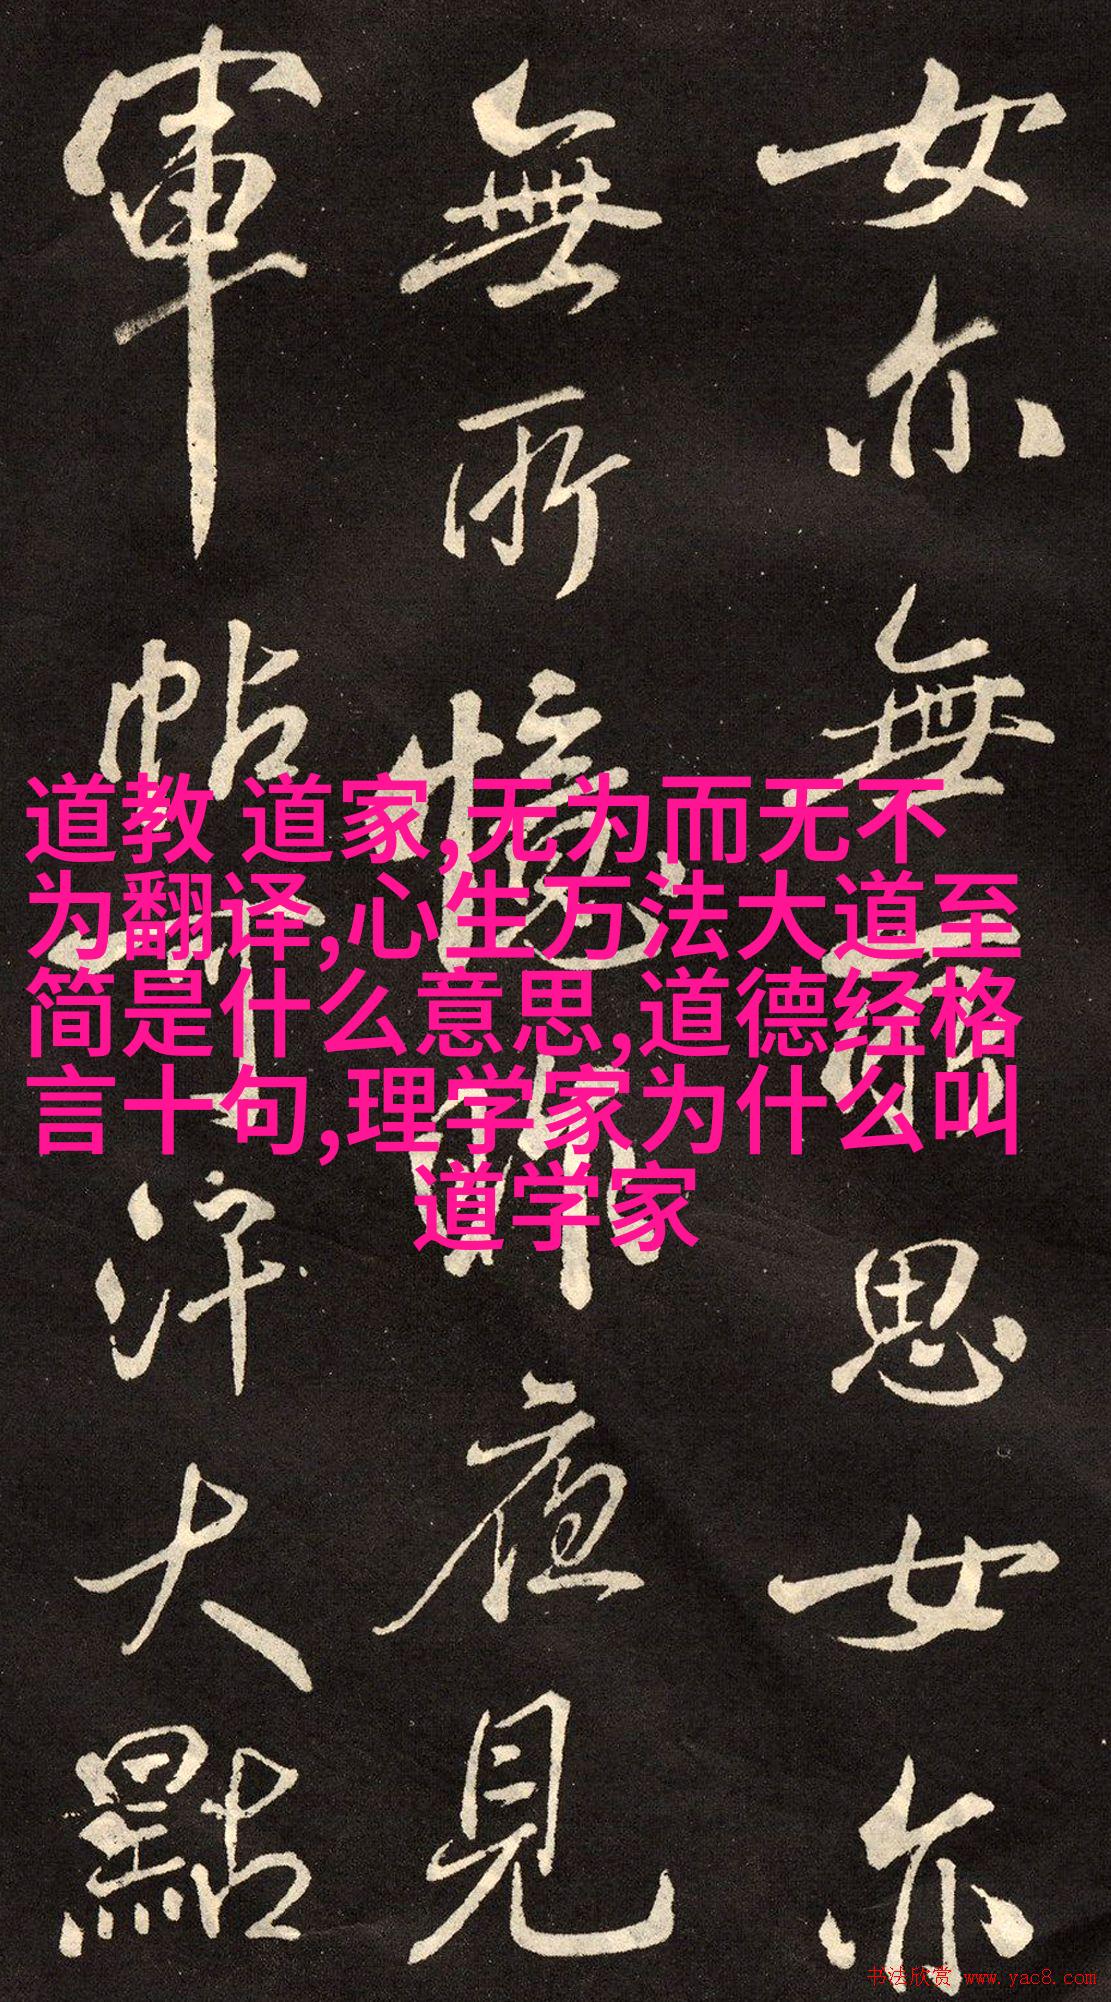 女亦無所思女亦
無所憶昨夜見
軍帖可汗大點
道教 道家,无为而无不
为翻译,心生万法大道至
简是什么意思,道德经格
言十句,理学家为什么叫
道学家
书法欣赏 www.yac8.com